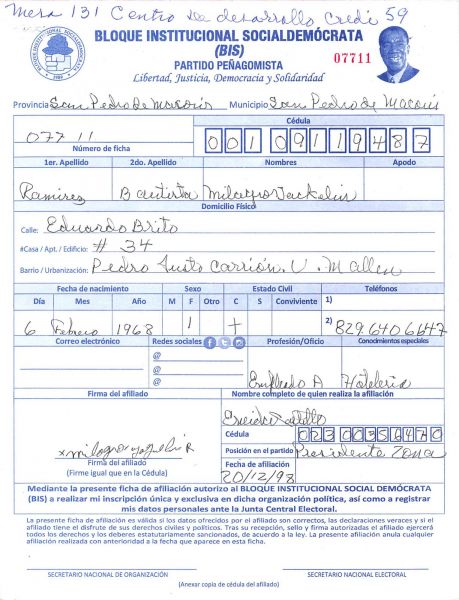 Mesa 131 Centro De desarrollo Credi 59
BLOQUE INSTITUCIONAL SOCIALDEMÓCRATA
(BIS)
07711
PARTIDO PEÑAGOMISTA
Libertad, Justicia, Democracia y Solidaridad
Provincia San Pedro de Macoris Municipio San Pedro de Macoris
07711
Número de ficha
Cédula
001 0911948 7
1er. Apellido 2do. Apellido Nombres Apodo
Ramirez Bautista Milagro Jackelin
Domicilio Físico
Calle: Eduardo Brito
#Casa / Apt. / Edificio: # 34
Barrio / Urbanización: Pedro Justo Carrión. V. Mallen
Fecha de nacimiento Sexo Estado Civil Teléfonos
Día Mes Año M F Otro C S Conviviente 1)
6 Febrero 1968 1 + 2) 829 640 6647
Correo electrónico Redes sociales Profesión/Oficio Conocimientos especiales
@
@
@
Empleado A Hoteleria
Firma del afiliado Nombre completo de quien realiza la afiliación
Cédula 023 0035647 0
Posición en el partido Presidente Zona
Firma del afiliado
(Firme igual que en la Cédula)
Fecha de afiliación
20/12/98
Mediante la presente ficha de afiliación autorizo al BLOQUE INSTITUCIONAL SOCIAL DEMÓCRATA
(BIS) a realizar mi inscripción única y exclusiva en dicha organización política, así como a registrar
mis datos personales ante la Junta Central Electoral.
La presente ficha de afiliación es válida si los datos ofrecidos por el afiliado son correctos, las declaraciones veraces y si el
afiliado tiene el disfrute de sus derechos civiles y políticos. Tras su recepción, sello y firma autorizadas el afiliado ejercerá
todos los derechos y los deberes estatutariamente sancionados, de acuerdo a la ley. La presente afiliación anula cualquier
afiliación realizada con anterioridad a la fecha que aparece en esta ficha.
SECRETARIO NACIONAL DE ORGANIZACIÓN SECRETARIO NACIONAL ELECTORAL
(Anexar copia de cédula del afiliado)